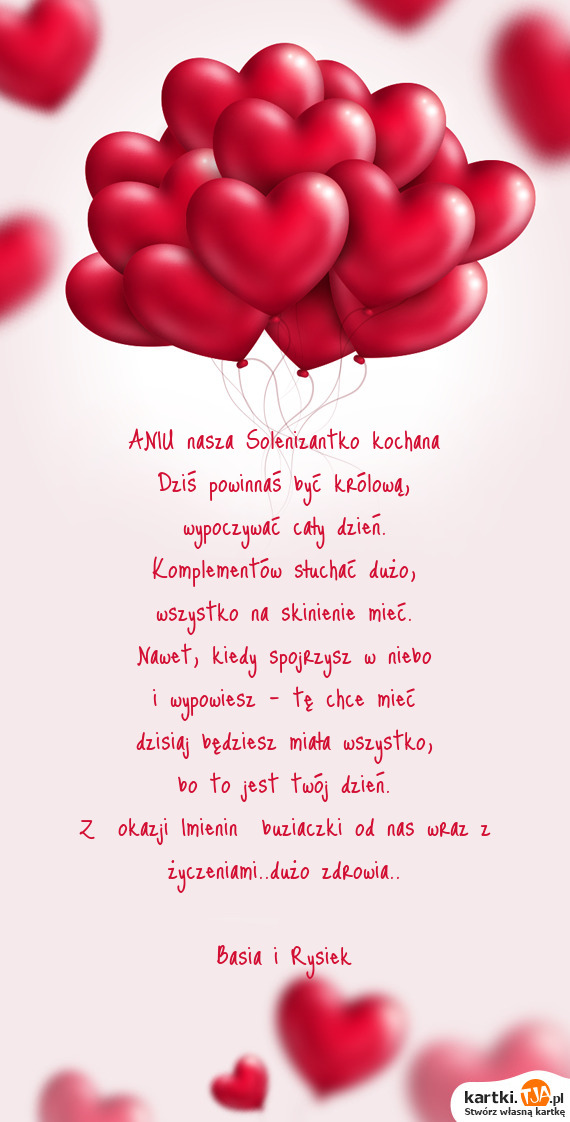 ANIU nasza Solenizantko kochana
Dziś powinnaś być królową,
wypoczywać cały dzień.
Komplementów słuchać dużo,
wszystko na skinienie mieć.
Nawet, kiedy spojrzysz w niebo
i wypowiesz - tę chce mieć
dzisiaj będziesz miała wszystko,
bo to jest twój dzień.
Z okazji Imienin buziaczki od nas wraz z
życzeniami..dużo zdrowia..
Basia i Rysiek
kartki.TJA.pl
Stwórz własną kartkę